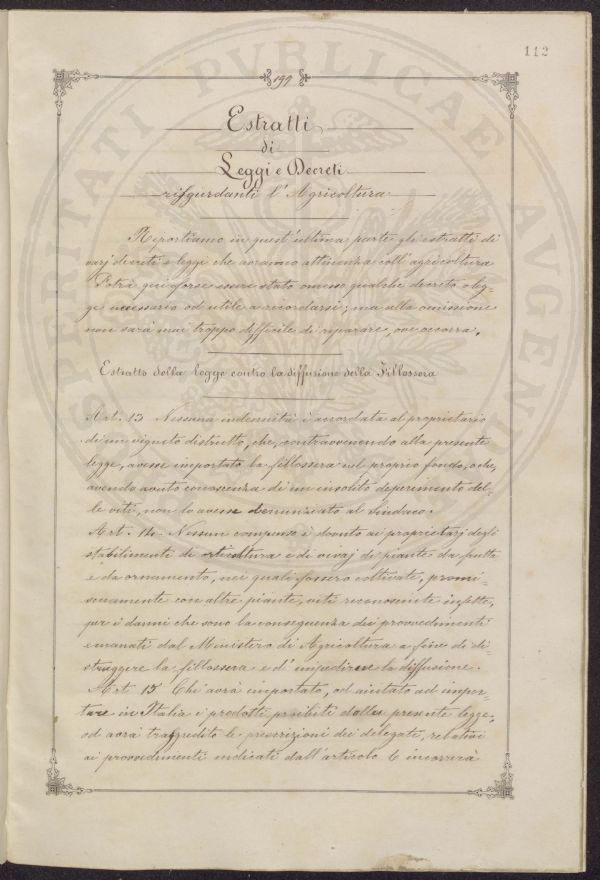 112
199
Estratti
di
Leggi e Decreti
risgurdanti l'Agricoltura
Riportiamo in quest'ultima parte gli estratti di
varj decreti e legge che avranno attinenza coll'agricoltura
Potrà qui forse essere stato omesso qualche decreto o leg-
ge necessario od utile a ricordarsi; ma alla omissione
non sarà mai troppo difficile di riparare, ove occorra.
Estratto della legge contro la diffusione della Fillossera
Art. 13 Nessuna indennità è accordata al proprietario
di un vigneto distrutto, che, contravvenendo alla presente
legge, avesse importato la fillossera nel proprio fondo, o che,
avendo avuto conoscenza di un insolito deperimento del-
le viti, non lo avesse denunziato al Sindaco.
Art. 14 - Nessun compenso è dovuto ai proprietarj degli
stabilimenti di orticoltura e di vivaj di piante da frutta
e da ornamento, nei quali fossero coltivate, promi-
scuamente con altre piante, viti riconosciute infette,
per i danni che sono la conseguenza dei provvedimenti
emanati dal Ministero di Agricoltura a fine di di-
struggere la fillossera e d'impedirne la diffusione.
Art 15 Chi avrà importato, od aiutato ad impor-
tare in Italia i prodotti proibiti dalla presente legge,
od avrà trasgredito le prescrizioni dei delegati, relativi
ai provvedimenti indicati dall'articolo 6 incorrerà
ASPERITATI PVBLICAE AVGENDAE